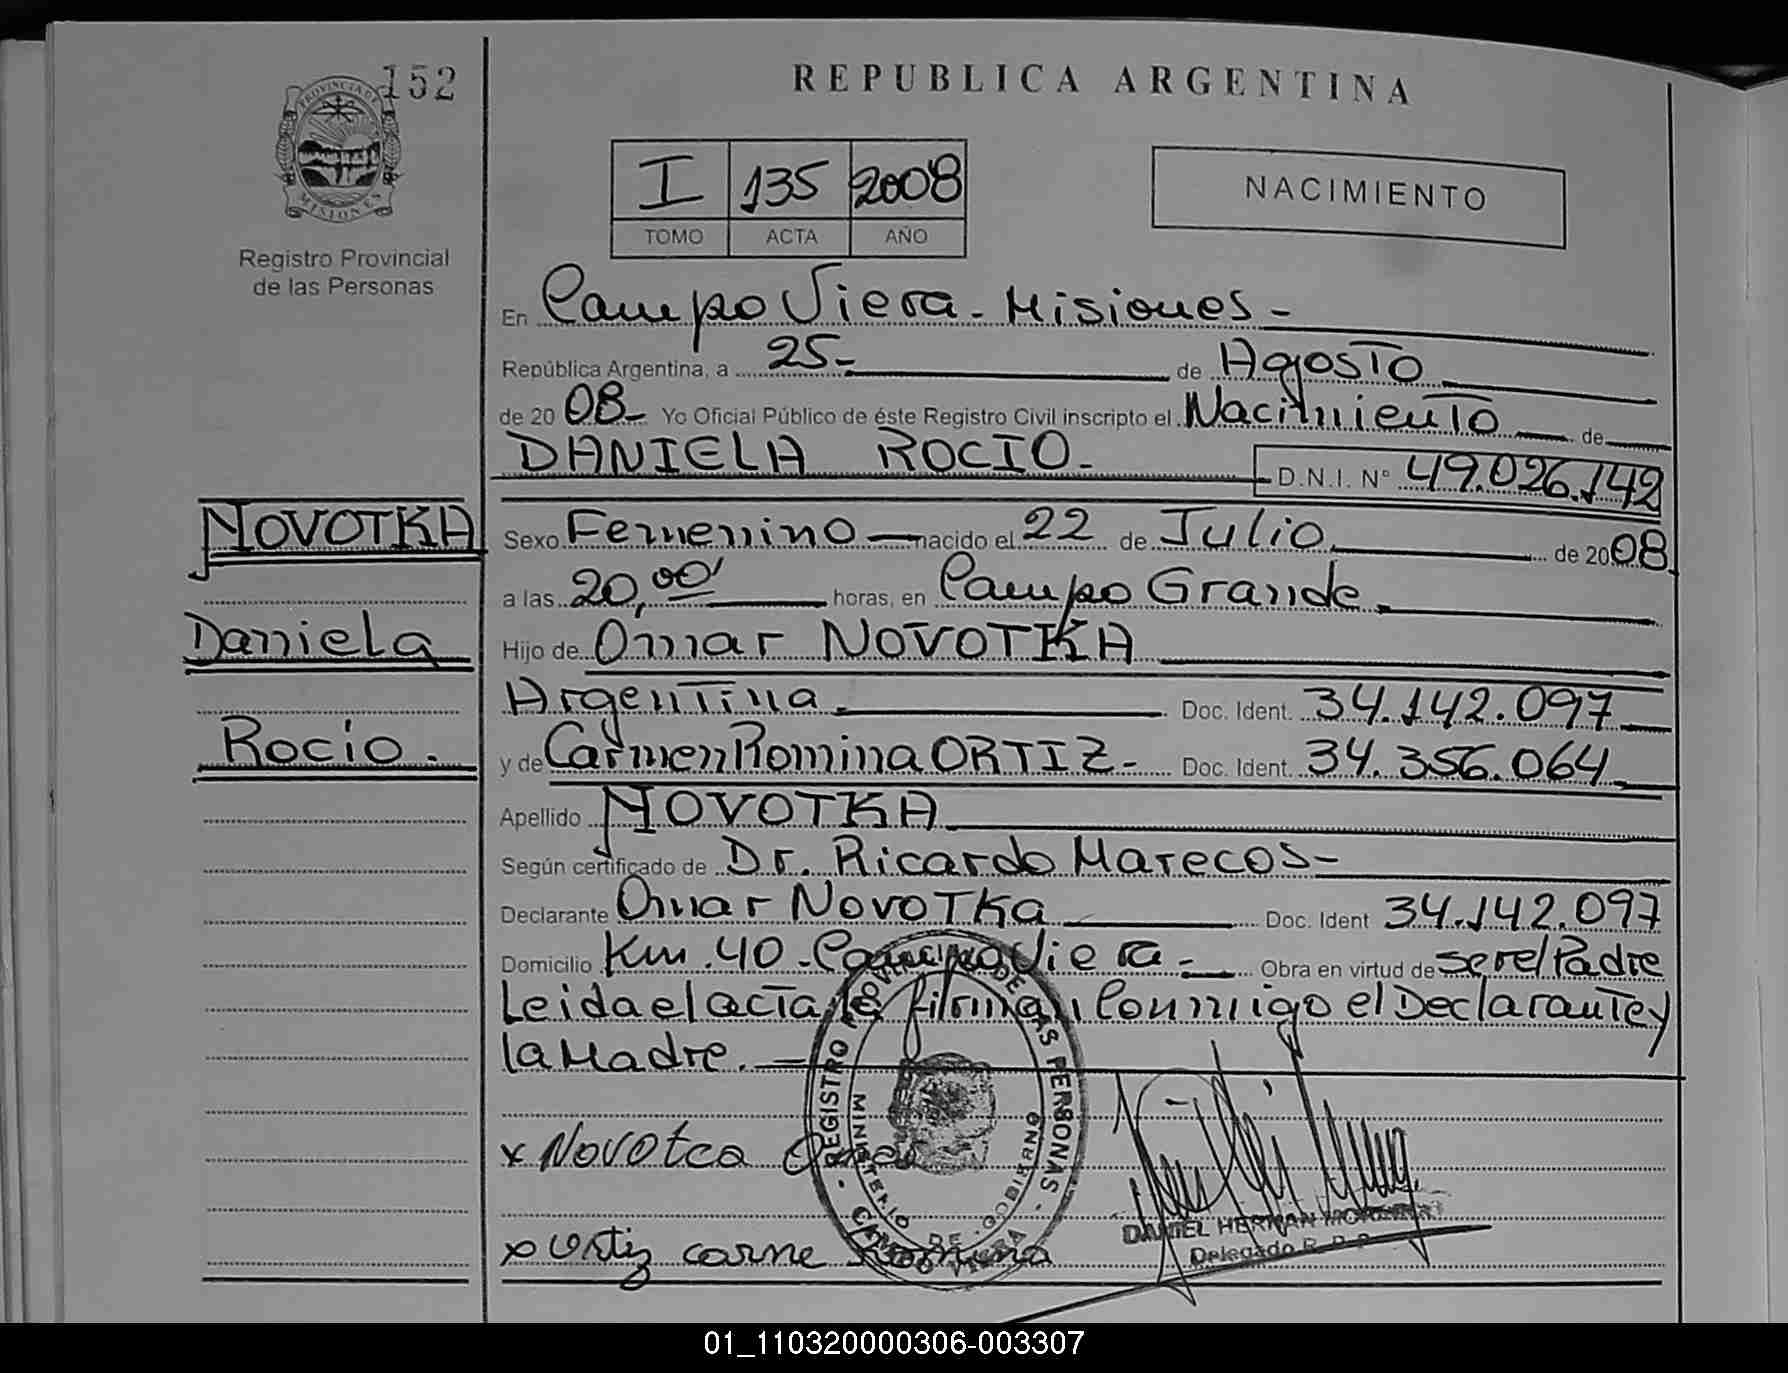 152
REPUBLICA ARGENTINA
PROVINCIA DE MISIONES
Registro Provincial
de las Personas
I 135 2008
TOMO ACTA AÑO
NACIMIENTO
En Campo Viera - Misiones -
República Argentina, a 25- de Agosto
de 20 08- Yo Oficial Público de éste Registro Civil inscripto el Nacimiento de
DANIELA ROCIO -
D.N.I. Nº 49.026.142
NOVOTKA
Sexo Femenino nacido el 22 de Julio de 2008
a las 20,00' horas, en Campo Grande
Daniela
Hijo de Omar NOVOTKA
Argentina Doc. Ident. 34.142.097
Rocío -
y de Carmen Romina ORTIZ - Doc. Ident. 34.356.064
Apellido NOVOTKA
Según certificado de Dr. Ricardo Marecos -
Declarante Omar NovoTKa Doc. Ident 34.142.097
Domicilio Km. 40 - Campo Viera - Obra en virtud de ser el Padre
Leida el acta la firman Conmigo el Declarante y
la Madre. -
REGISTRO PROVINCIAL DE LAS PERSONAS - CAMPO VIERA -
MINISTERIO DE GOBIERNO
x Novotca Omar
x Ortiz carme Romina
DANIEL HERNAN
Delegado R. P. P.
01_110320000306-003307